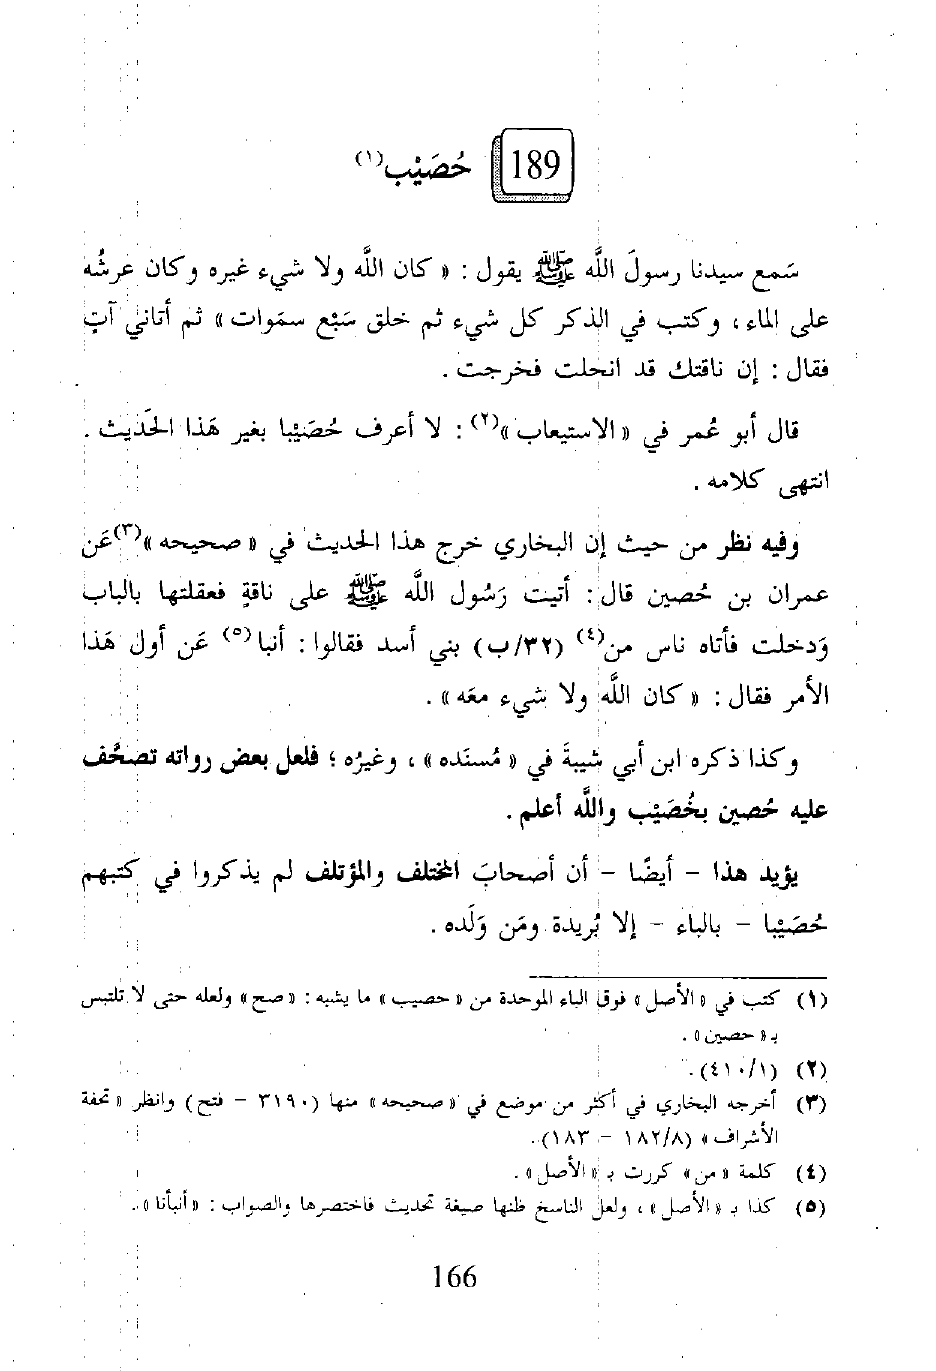 189 حُصَيْب(١)
سَمع سيدنا رسولَ اللَّه ﷺ يقول : « كان اللَّه ولا شيء غيره وكان عرشُه
على الماء ، وكتب في الذكر كل شيء ثم خلق سَبْع سمَوات » ثم أتاني آتٍ
فقال : إن ناقتك قد انحلت فخرجت .
قال أبو عُمر في « الاستيعاب »(٢) : لا أعرف حُصَيْبا بغير هَذا الحَديث .
انتهى كلامه .
وفيه نظر من حيث إن البخاري خرج هذا الحديث في « صحيحه »(٣) عَن
عمران بن حُصين قال : أتيت رَسُول اللَّه ﷺ على ناقةٍ فعقلتها بالباب
وَدخلت فأتاه ناس من(٤) (٣٢/ب) بني أسد فقالوا : أنبا(٥) عَن أول هَذا
الأمر فقال : « كان اللَّه ولا شيء معَه » .
وكذا ذكره ابن أبي شيبةَ في « مُسنَده » ، وغيرُه ؛ فلعل بعض رواته تصحَّف
عليه حُصين بحُصَيْب واللَّه أعلم .
يؤيد هذا – أيضًا – أن أصحابَ المختلف والمؤتلف لم يذكروا في كتبهم
حُصَيْبا – بالباء – إلا بُريدة ومَن وَلَده .
(١) كتب في « الأصل » فوق الباء الموحدة من « حصيب » ما يشبه : « صح » ولعله حتى لا تلتبس
بـ « حصين » .
(٢) (٤١٠/١) .
(٣) أخرجه البخاري في أكثر من موضع في « صحيحه » منها (٣١٩٠ – فتح) وانظر « تحفة
الأشراف » (١٨٢/٨ – ١٨٣) .
(٤) كلمة « من » كررت بـ « الأصل » .
(٥) كذا بـ « الأصل » ، ولعل الناسخ ظنها صيغة تحديث فاختصرها والصواب : « أنبأنا » .
166